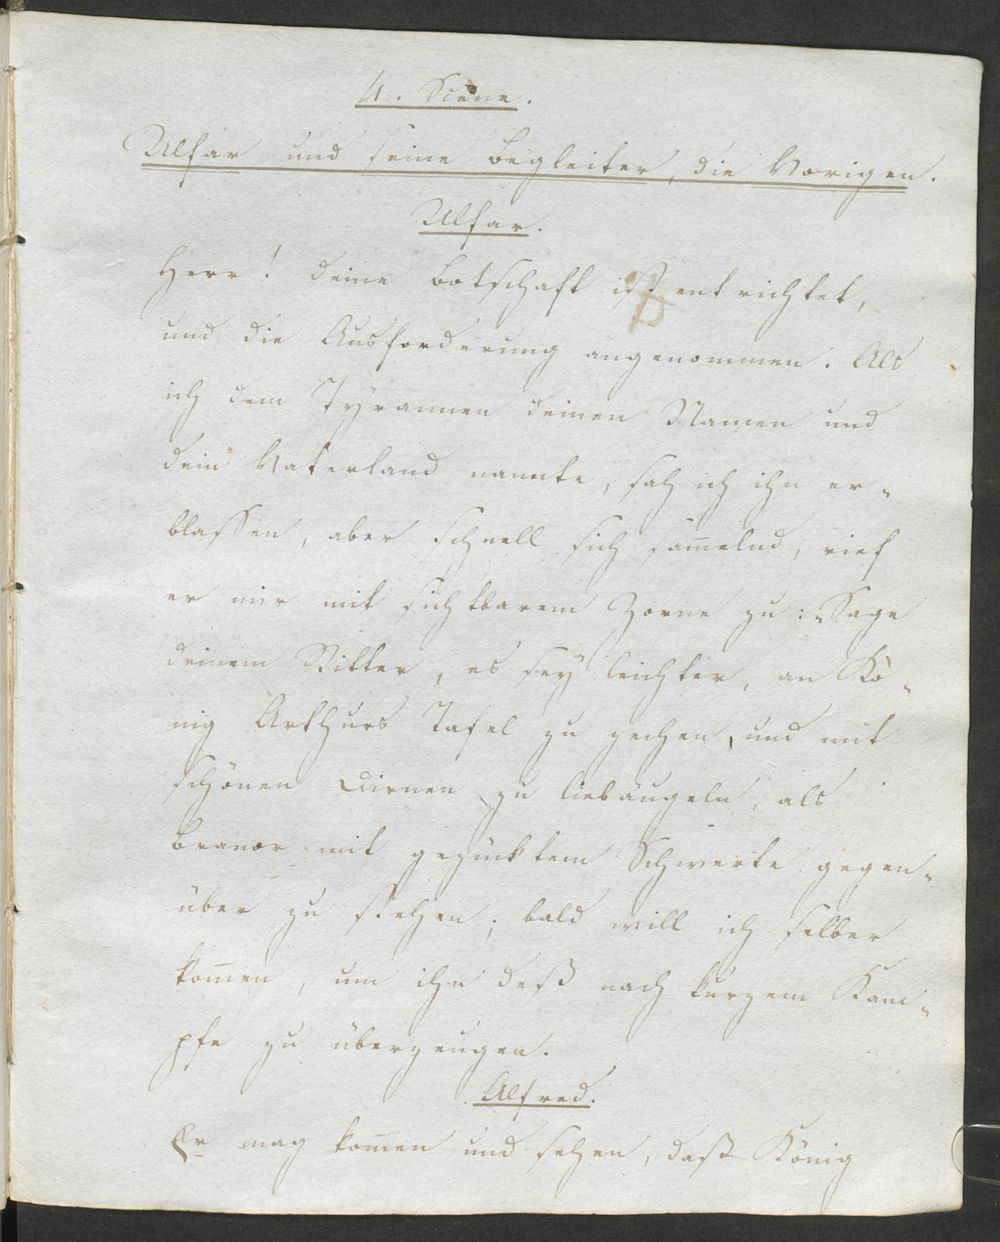 4. Scene.
Ulfar und seine Begleiter, die Vorigen.
Ulfar.
Herr! deine Botschaft ist entrichtet,
und die Ausforderung angenommen. Als
ich dem Tyrannen deinen Namen und
dein Vaterland nannte, sah ich ihn er-
blassen, aber schnell sich sam̅elnd, rief
er mir mit sichtbarem Zorne zu: „Sage
deinem Ritter, es sey leichter, an Kö-
nig Arthurs Tafel zu zechen, und mit
schönen Dirnen zu liebäugeln, als
Branor mit gezücktem Schwerte gegen-
über zu stehen; bald will ich selber
kom̅en, um ihn deß nach kurzem Kam-
pfe zu überzeugen.
Alfred.
Er mag kom̅en und sehen, daß König